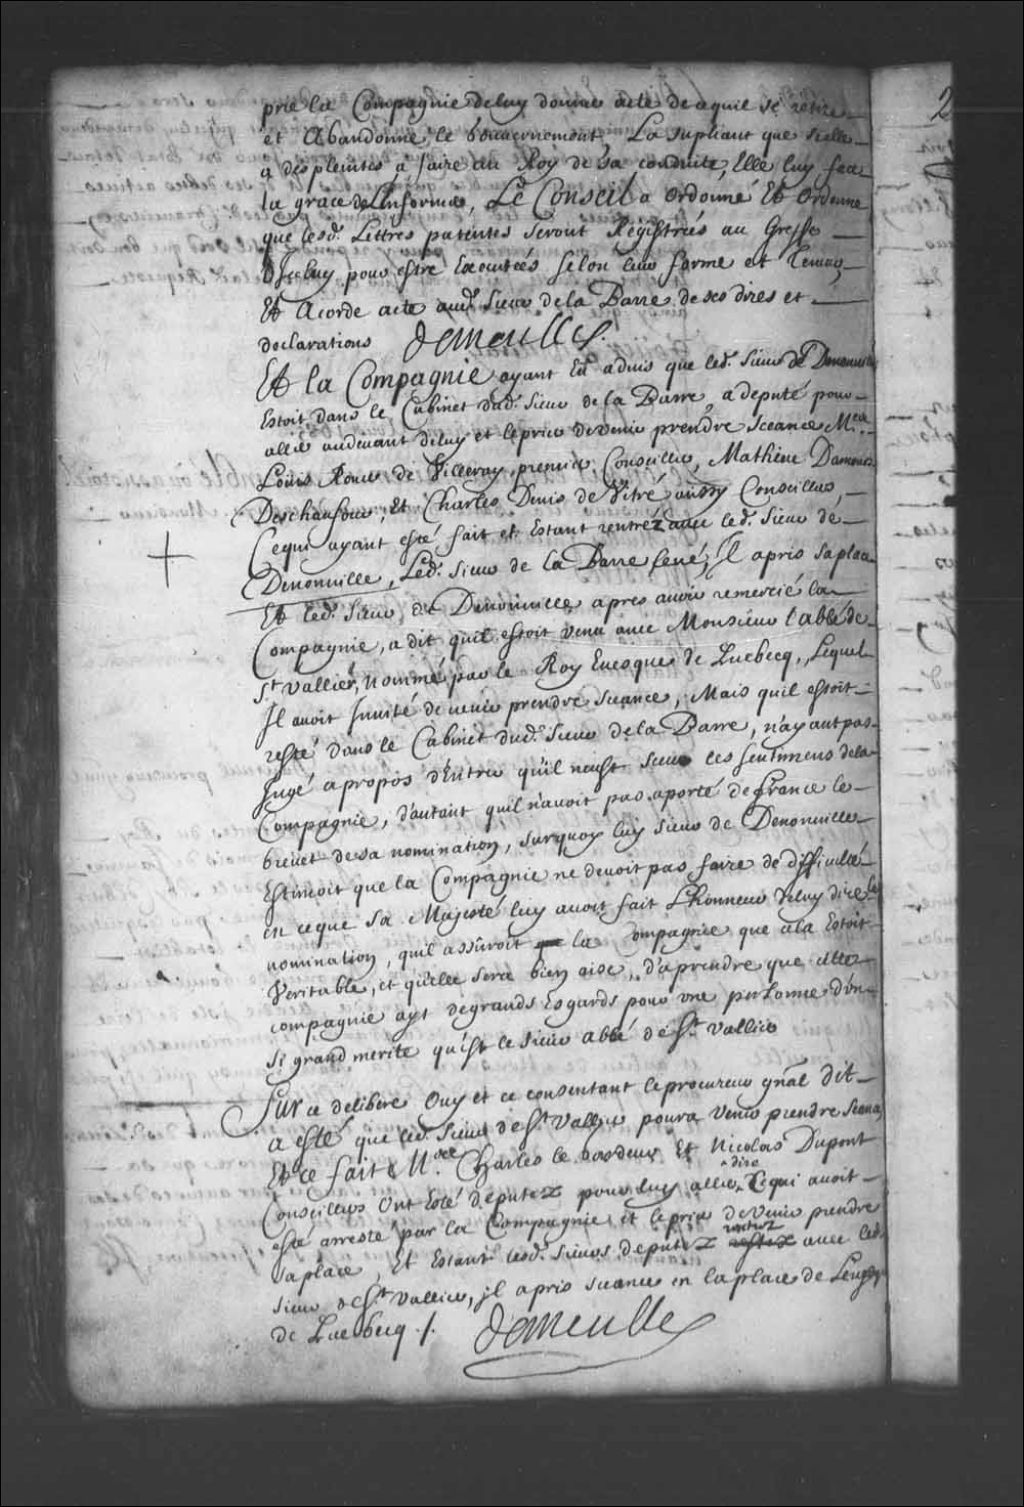 prie la Compagnie de luy donner acte de ce quil se retire
et abandonne le Gouvernement, La supliant que si elle
a des pleintes a faire au Roy de sa conduite, Elle luy face
la grace de l'informer, Le Conseil a Ordonné Et Ordonne
que lesd. Lettres patentes seront Régistrées au Greffe
d'Iceluy pour estre Executées selon leur forme et teneur,
Et Acorde acte aud. Sieur de la Barre de ses dires et
declarations Demeulle
Et la Compagnie ayant Eu aduis que led. Sieur de Denonville
Estoit dans le Cabinet dud. Sieur de la Barre, a deputé pour
aller audeuant de luy et le prier de venir prendre Sceance Mes.
Louis Rouer de Villeray premier Conseiller, Mathieu Damours
Deschaufour, et Charles Denis de Vitré aussy Conseillers,
Ce qui ayant esté fait et Estant rentréz auec led. Sieur de
Denonville, Led. Sieur de la Barre leué, Il a pris sa place
Et led. Sieur de Denonville apres auoir remercié la
Compagnie, a dit quil estoit venu auec Monsieur l'abbé de
St. Vallier, nommé par le Roy Euesque de Quebecq, Lequel
Il auoit Inuité de uenir prendre sceance, Mais quil estoit
resté dans le Cabinet dud. Sieur de la Barre, n'ayant pas
Jugé apropos d'Entrer qu'il n'eust sceu les sentimens de la
Compagnie, d'autant quil n'auoit pas aporté de france le
breuet de sa nomination, surquoy luy Sieur de Denonville
Estimoit que la Compagnie ne deuoit pas faire de difficulté
en ce que Sa Majesté luy auoit fait L'honneur de luy dire la
nomination, quil assûroit la Compagnie que cela Estoit
Veritable, et qu'elle sera bien aise d'aprendre que cette
compagnie ayt de grands Esgards pour vne personne d'un
si grand merite qu'est le Sieur abbé de St. Vallier
Sur ce deliberé Ouy et ce consentant le procureur gñal dit
a esté que led. Sieur de St. Vallier poura venir prendre sceance
Et ce fait Mes. Charles le Gardeur Et Nicolas Dupont
Conseillers Ont Esté députez pour luy aller dire Ce qui auoit
esté arresté par la Compagnie, et le prier de venir prendre
sa place, Et Estant lesd. Sieurs deputéz rentrez auec led.
Sieur de St. Vallier, il a pris sceance en la place de Leuesque
de Quebecq ./. Demeulle